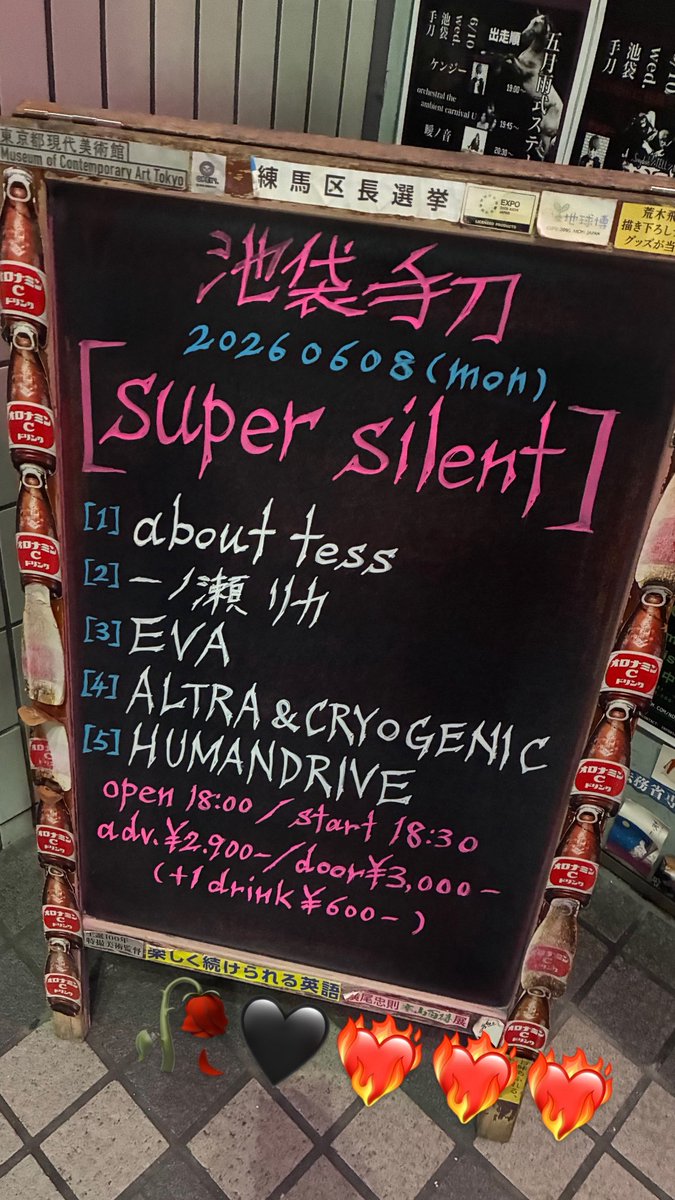 五月雨式ステ
出走順
6/10 wed.
池袋手刀
ケンジー
19:00
orchestral the
ambient carnival U
19:45~
暖ノ音
20:30~
東京都現代美術館
Museum of Contemporary Art Tokyo
練馬区長選挙
EXPO
LICENSED PRODUCTS
地球博
荒木飛
描き下ろし
グッズが当
池袋手刀
20260608(mon)
[super silent]
[1] about tess
[2] 一ノ瀬 リカ
[3] EVA
[4] ALTRA & CRYOGENIC
[5] HUMANDRIVE
open 18:00 / start 18:30
adv. ¥2.900- / door ¥3,000-
(+1 drink ¥600-)
オロナミン
C
ドリンク
特撮美術監督
楽しく続けられる英語
横尾忠則